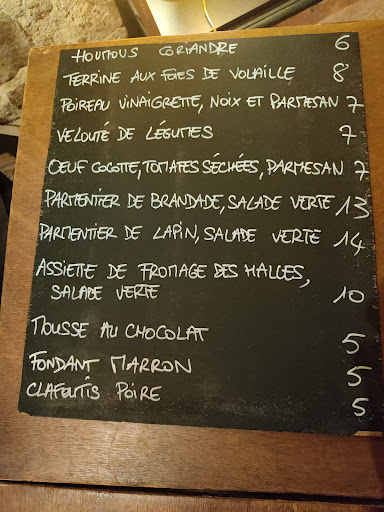 HOUMOUS CORIANDRE 6
TERRINE AUX FOIES DE VOLAILLE 8
POIREAU VINAIGRETTE, NOIX ET PARMESAN 7
VELOUTÉ DE LÉGUMES 7
OEUF COCOTTE, TOMATES SÉCHÉES, PARMESAN 7
PARMENTIER DE BRANDADE, SALADE VERTE 13
PARMENTIER DE LAPIN, SALADE VERTE 14
ASSIETTE DE FROMAGE DES HALLES,
SALADE VERTE 10
MOUSSE AU CHOCOLAT 5
FONDANT MARRON 5
CLAFOUTIS POIRE 5